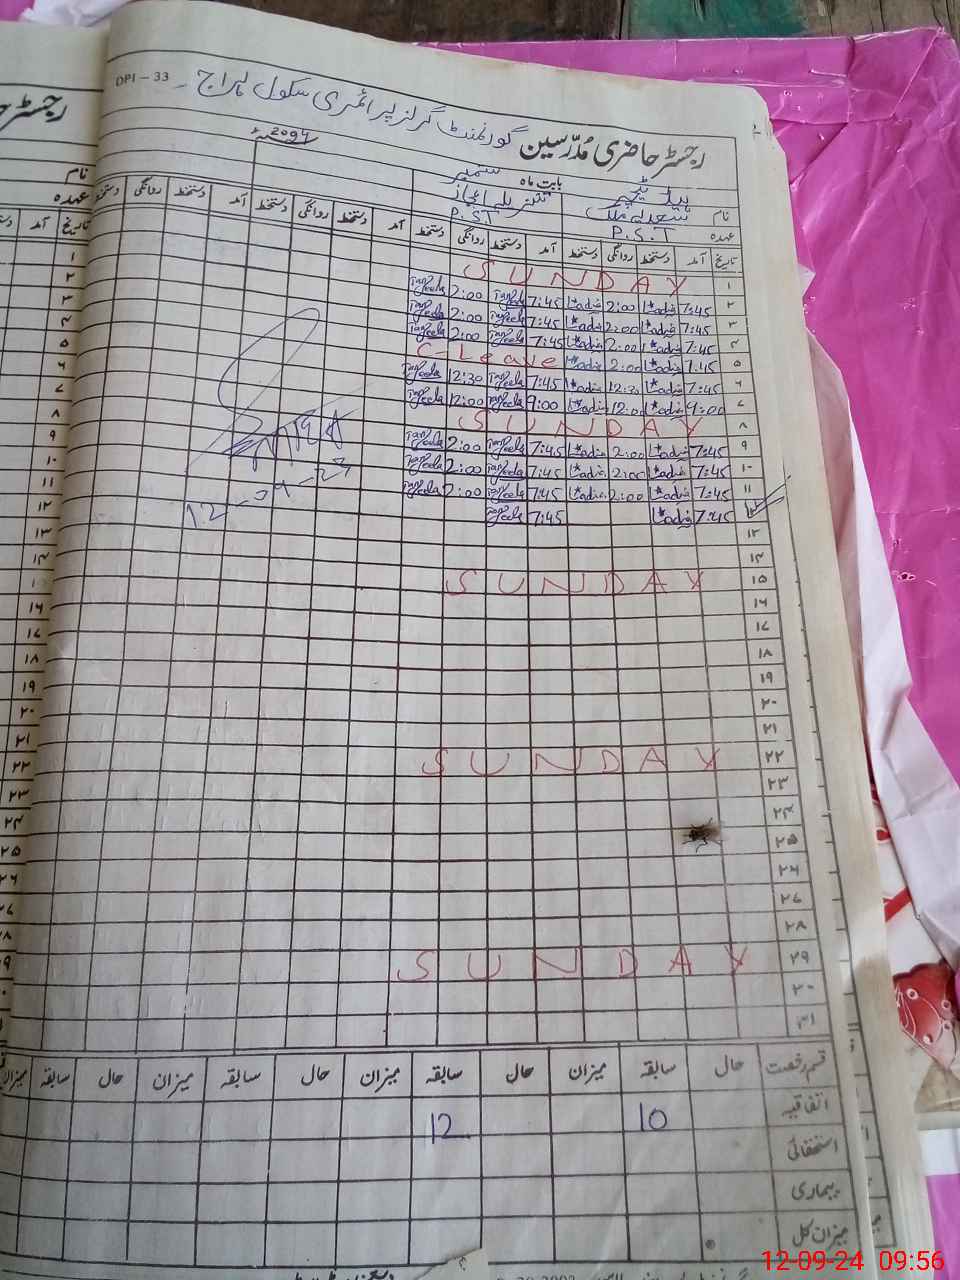 DPI - 33
رجسٹر حاضری مُدّرسین گورنمنٹ گرلز پرائمری سکول
بابت ماہ ستمبر 2024ء
نام ہیڈ ٹیچر سعدیہ ملک تنزیلہ اعجاز
عہدہ P.S.T P.S.T
تاریخ آمد دستخط روانگی دستخط آمد دستخط روانگی دستخط آمد دستخط روانگی دستخط آمد دستخط روانگی دستخط
۱ SUNDAY
۲ 7:45 Sadia 2:00 Sadia 7:45 Tanzeela 2:00 Tanzeela
۳ 7:45 Sadia 2:00 Sadia 7:45 Tanzeela 2:00 Tanzeela
۴ 7:45 Sadia 2:00 Sadia 7:45 Tanzeela 2:00 Tanzeela
۵ 7:45 Sadia 2:00 Sadia C-Leave
۶ 7:45 Sadia 12:30 Sadia 7:45 Tanzeela 12:30 Tanzeela
۷ 9:00 Sadia 12:00 Sadia 9:00 Tanzeela 12:00 Tanzeela
۸ SUNDAY
۹ 7:45 Sadia 2:00 Sadia 7:45 Tanzeela 2:00 Tanzeela
۱۰ 7:45 Sadia 2:00 Sadia 7:45 Tanzeela 2:00 Tanzeela
۱۱ 7:45 Sadia 2:00 Sadia 7:45 Tanzeela 2:00 Tanzeela
۱۲ 7:45 Sadia 7:45 Tanzeela
۱۳
۱۴
۱۵ SUNDAY
۱۶
۱۷
۱۸
۱۹
۲۰
۲۱
۲۲ SUNDAY
۲۳
۲۴
۲۵
۲۶
۲۷
۲۸
۲۹ SUNDAY
۳۰
۳۱
قسم رخصت حال سابقہ میزان حال سابقہ میزان حال سابقہ میزان حال سابقہ میزان
اتفاقیہ 10 12
استحقاقی
بیماری
میزان کل
12-09-24 09:56